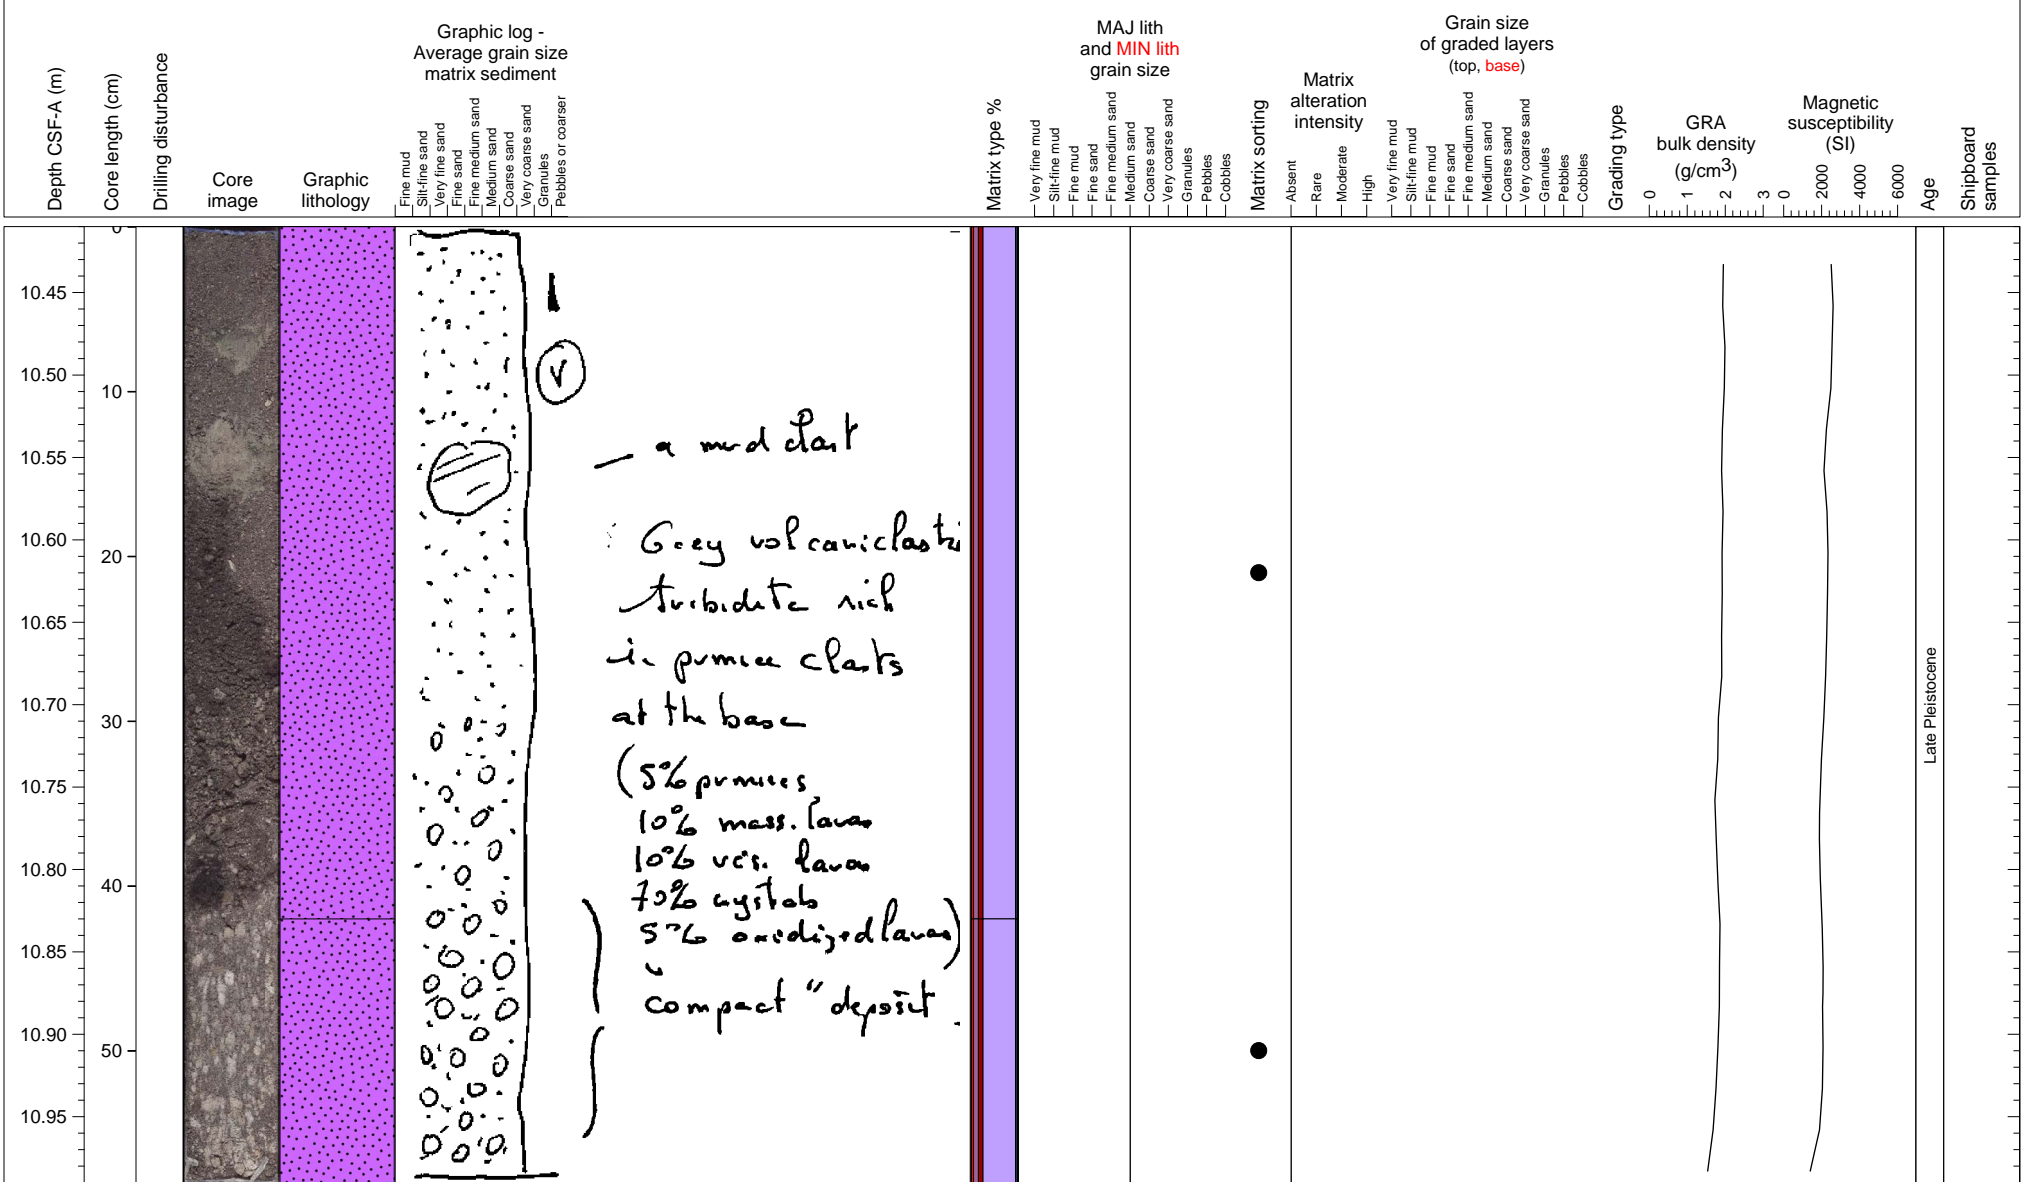 Depth CSF-A (m)
Core length (cm)
Drilling disturbance
Core
image
Graphic
lithology
Graphic log -
Average grain size
matrix sediment
Fine mud
Silt-fine sand
Very fine sand
Fine sand
Fine medium sand
Medium sand
Coarse sand
Very coarse sand
Granules
Pebbles or coarser
Matrix type %
MAJ lith
and MIN lith
grain size
Very fine mud
Silt-fine mud
Fine mud
Fine sand
Fine medium sand
Medium sand
Coarse sand
Very coarse sand
Granules
Pebbles
Cobbles
Matrix sorting
Matrix
alteration
intensity
Absent
Rare
Moderate
High
Grain size
of graded layers
(top, base)
Very fine mud
Silt-fine mud
Fine mud
Fine sand
Fine medium sand
Medium sand
Coarse sand
Very coarse sand
Granules
Pebbles
Cobbles
Grading type
GRA
bulk density
(g/cm3)
0 1 2 3
Magnetic
susceptibility
(SI)
0 2000 4000 6000
Age
Shipboard
samples
0
10.45
10.50
10
10.55
10.60
20
10.65
10.70
30
10.75
10.80
40
10.85
10.90
50
10.95
V
a mud clast
Grey volcaniclasti
turbidite rich
in pumice clasts
at the base
(5% pumices
10% mass. lavas
10% ves. lavas
70% crystals
5% oxidized lavas)
compact " deposit
Late Pleistocene